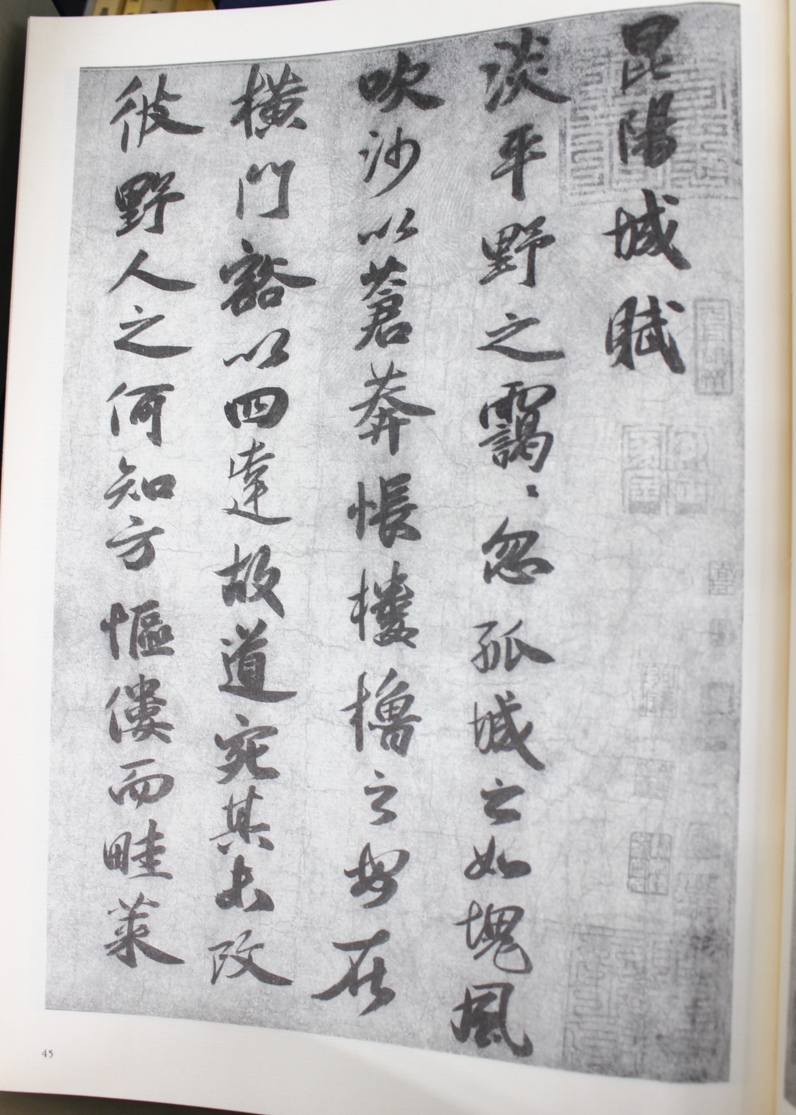 昆陽城賦
淡平野之靄々忽孤城之如塊風
吹沙以蒼莽悵樓櫓之安在
橫門豁以四達故道宛其未改
彼野人之何知方傴僂而畦菜
45